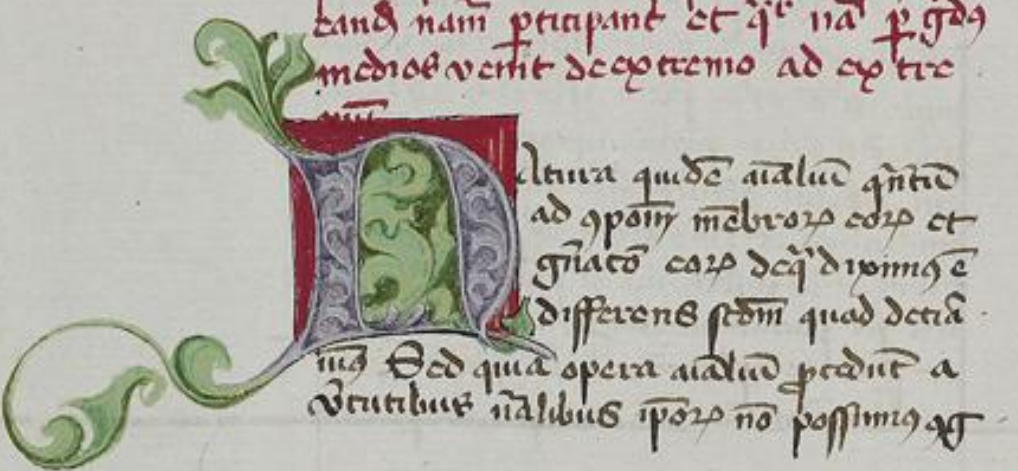 eandē nām pticipant et qͥ nā p gͣdꝯ
medios venit de extremo ad extre
mū
Natura quidē aīaliū qͣntū
ad ꝯpōnꝫ mēbroꝝ eoꝝ et
gn̄atō eoꝝ de qͣ diximꝯ ē
differens scd̄m quod decͣa
iuꝯ Sed quia opera aīaliū ꝓcedūt a
v̄tutibus nāalibus ip̄oꝝ nō possumꝯ